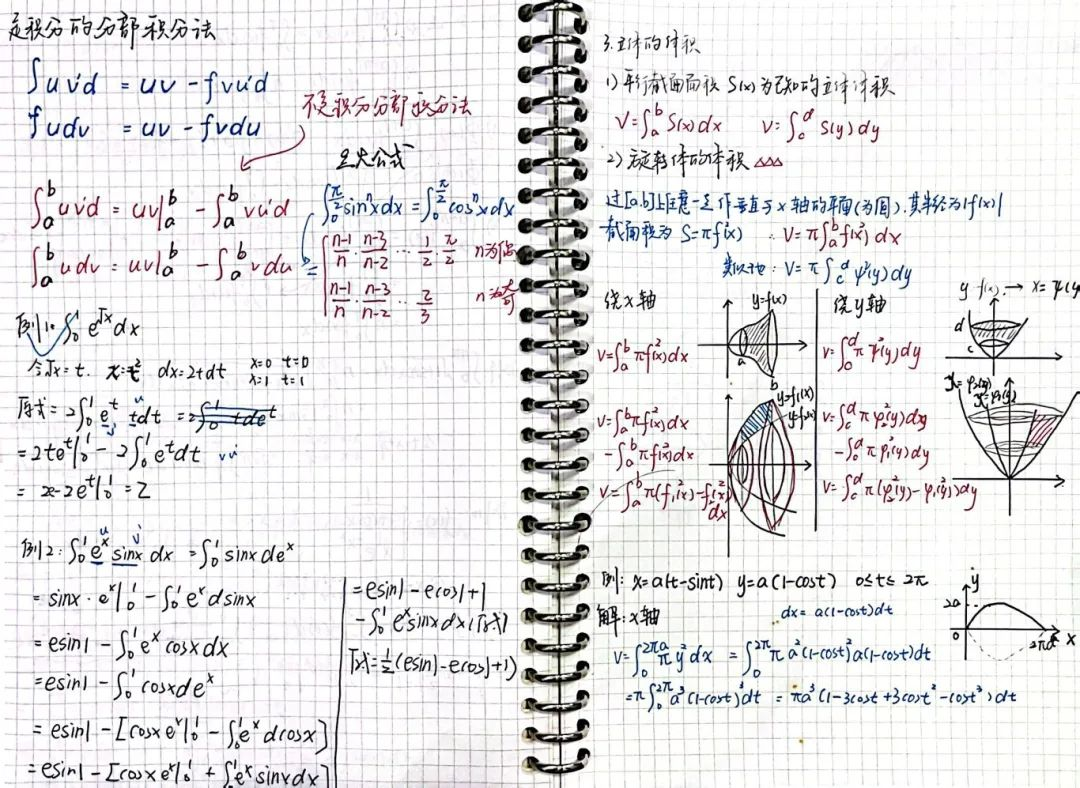 定积分的分部积分法
∫uv'd = uv - ∫vu'd
∫udv = uv - ∫vdu
不定积分分部积分法
∫ₐᵇ uv'd = uv|ₐᵇ - ∫ₐᵇ vu'd
∫ₐᵇ udv = uv|ₐᵇ - ∫ₐᵇ vdu
公式
∫₀^(π/2) sinⁿxdx = ∫₀^(π/2) cosⁿxdx
= { (n-1)/n · (n-3)/(n-2) ··· 1/2 · π/2 n为偶
(n-1)/n · (n-3)/(n-2) ··· 2/3 n为奇
例1: ∫₀¹ e^√x dx
令√x = t. x = t² dx = 2tdt x=0 t=0
x=1 t=1
原式 = 2∫₀¹ eᵗ tdt = 2∫₀¹ tdeᵗ
= 2teᵗ|₀¹ - 2∫₀¹ eᵗdt
= 2e-2eᵗ|₀¹ = 2
例2: ∫₀¹ eˣ sinx dx = ∫₀¹ sinx deˣ
= sinx · eˣ|₀¹ - ∫₀¹ eˣ dsinx
= esin1 - ∫₀¹ eˣ cosx dx
= esin1 - ∫₀¹ cosxdeˣ
= esin1 - [cosx eˣ|₀¹ - ∫₀¹ eˣ dcosx]
= esin1 - [cosx eˣ|₀¹ + ∫₀¹ eˣ sinxdx]
= esin1 - ecos1 + 1
- ∫₀¹ eˣsinx dx (原式)
原式 = 1/2(esin1 - ecos1 + 1)
3.立体的体积
1) 平行截面面积 S(x)为已知的立体体积
V = ∫ₐᵇ S(x)dx V = ∫_c^d S(y)dy
2) 旋转体的体积 △△△
过[a.b]上任意一点作垂直于x轴的平面(为圆).其半径为|f(x)|
截面积为 S=πf²(x) ∴ V = π∫ₐᵇ f²(x)dx
类似地: V = π∫_c^d ψ²(y)dy
绕x轴
V = ∫ₐᵇ πf²(x)dx
y=f(x)
a
b
V = ∫ₐᵇ πf²(x)dx
- ∫ₐᵇ πf²(x)dx
V = ∫ₐᵇ π(f₁²(x) - f₂²(x))dx
y=f₁(x)
y=f₂(x)
绕y轴
y=f(x). → x=ψ(y)
V = ∫_c^d π ψ²(y)dy
d
c
V = ∫_c^d π φ₂²(y)dy
- ∫_c^d π φ₁²(y)dy
V = ∫_c^d π(φ₂²(y) - φ₁²(y))dy
例: x = a(t-sint) y = a(1-cost) 0≤t≤2π
解: x轴 dx = a(1-cost)dt
V = ∫₀^(2πa) πy²dx = ∫₀^(2π) π a²(1-cost)²a(1-cost)dt
= π∫₀^(2π) a³(1-cost)³dt = πa³(1-3cost+3cost²-cost³)dt
y
2a
0
2πa
x